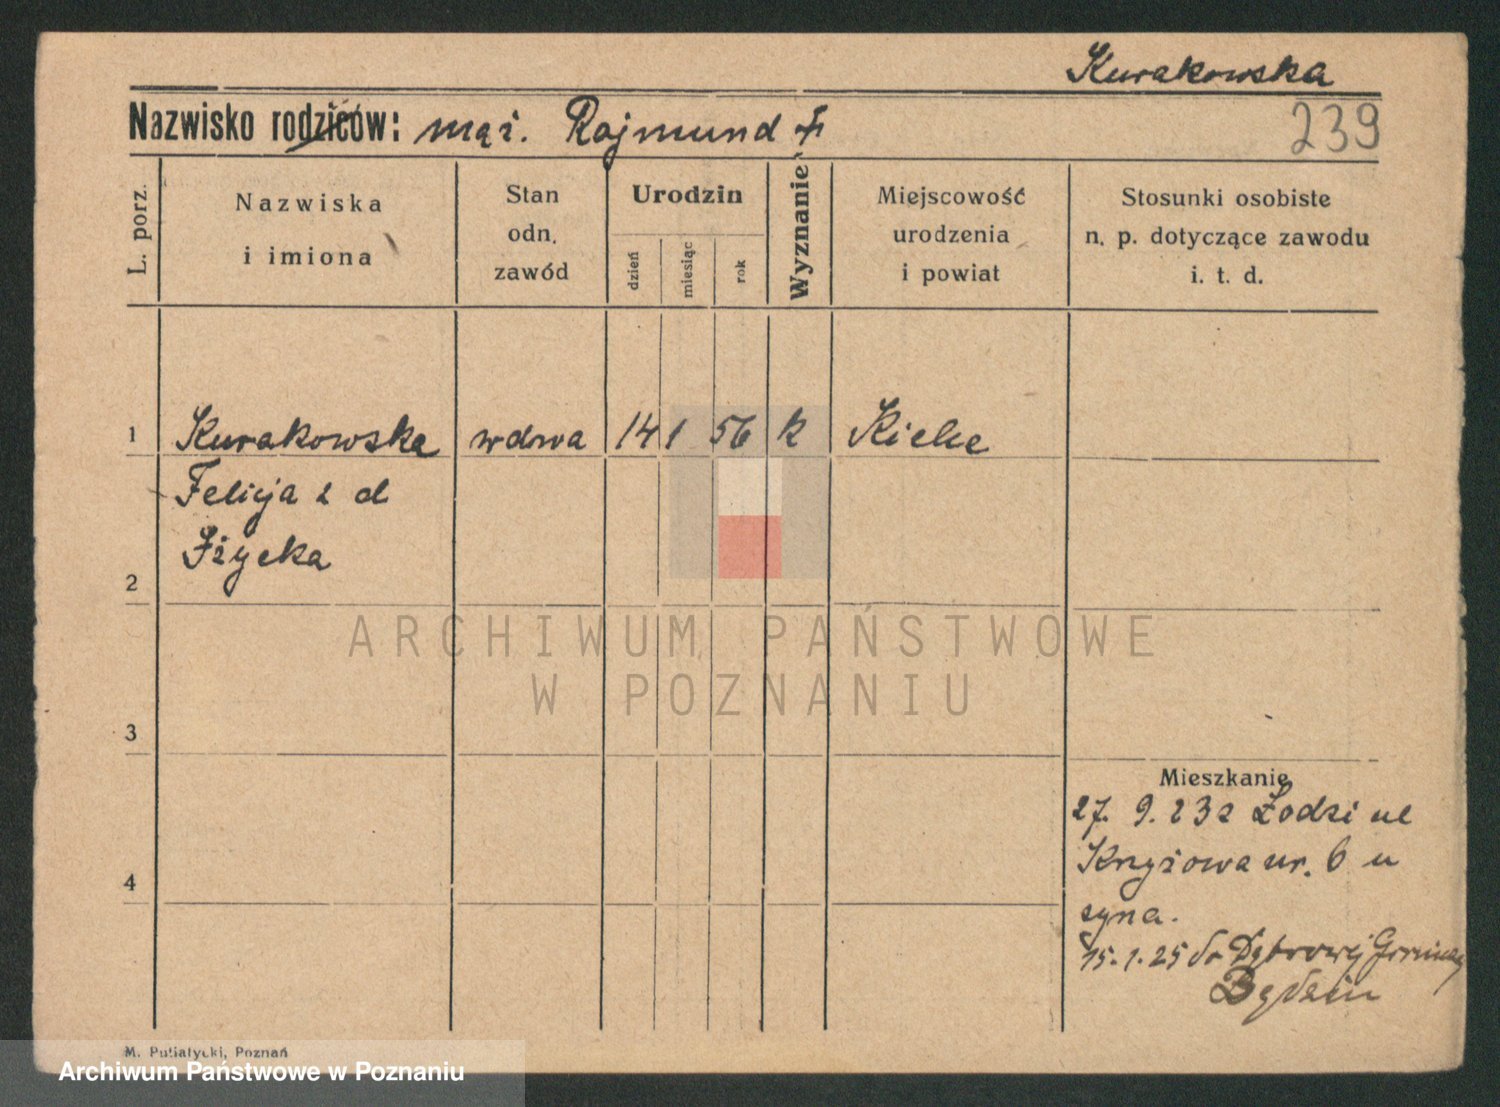 Kurakowska
Nazwisko rodziców: mąż. Rajmund †
239
L. porz.
Nazwiska
i imiona
Stan
odn.
zawód
Urodzin
dzień
miesiąc
rok
Wyznanie
Miejscowość
urodzenia
i powiat
Stosunki osobiste
n. p. dotyczące zawodu
i. t. d.
1 Kurakowska wdowa 14 1 56 k Kielce
Felicja z d
2
3
4
Mieszkanie
27. 9. 23 z Łodzi ul
Krzyżowa nr. 6 u
syna.
15.1.25 do Dąbrowej Górniczej
Będzin
M. Putiatycki, Poznań
ARCHIWUM PAŃSTWOWE
W POZNANIU
Archiwum Państwowe w Poznaniu